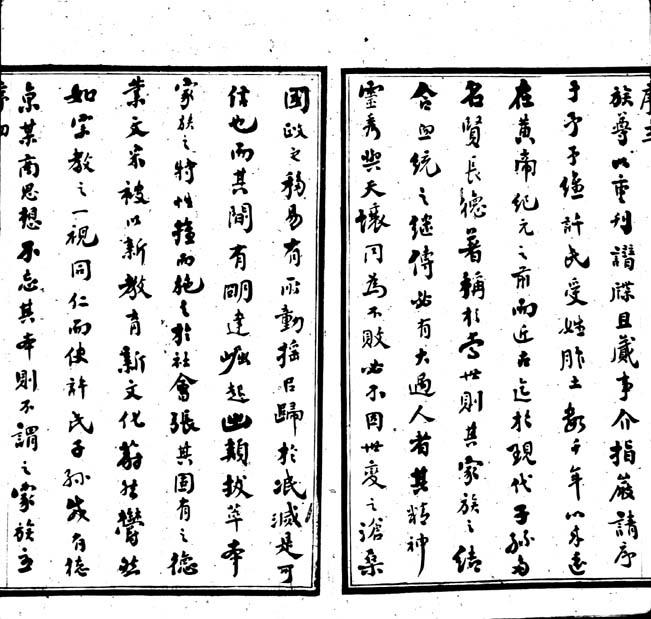 族尊以重刊譜牒且蕆事介指巖請序
于予予維許氏受姓胙土數千年以來遠
在黃帝紀元之前而近古迄於現代子孫多
名賢長德著稱於當世則其家族之結
合血統之繼傳必有大過人者其精神
靈秀與天壤同為不敗必不因世變之滄桑
國政之移易有所動搖召歸於泯滅是可
信也而其間有明達崛起出類拔萃本
家族之特性種而施之於社會張其固有之德
業文采被以新教育新文化蔚然鬱然
如宗教之一視同仁而使許氏子孫咸有德
京某商思想不忘其本則不謂之家族主